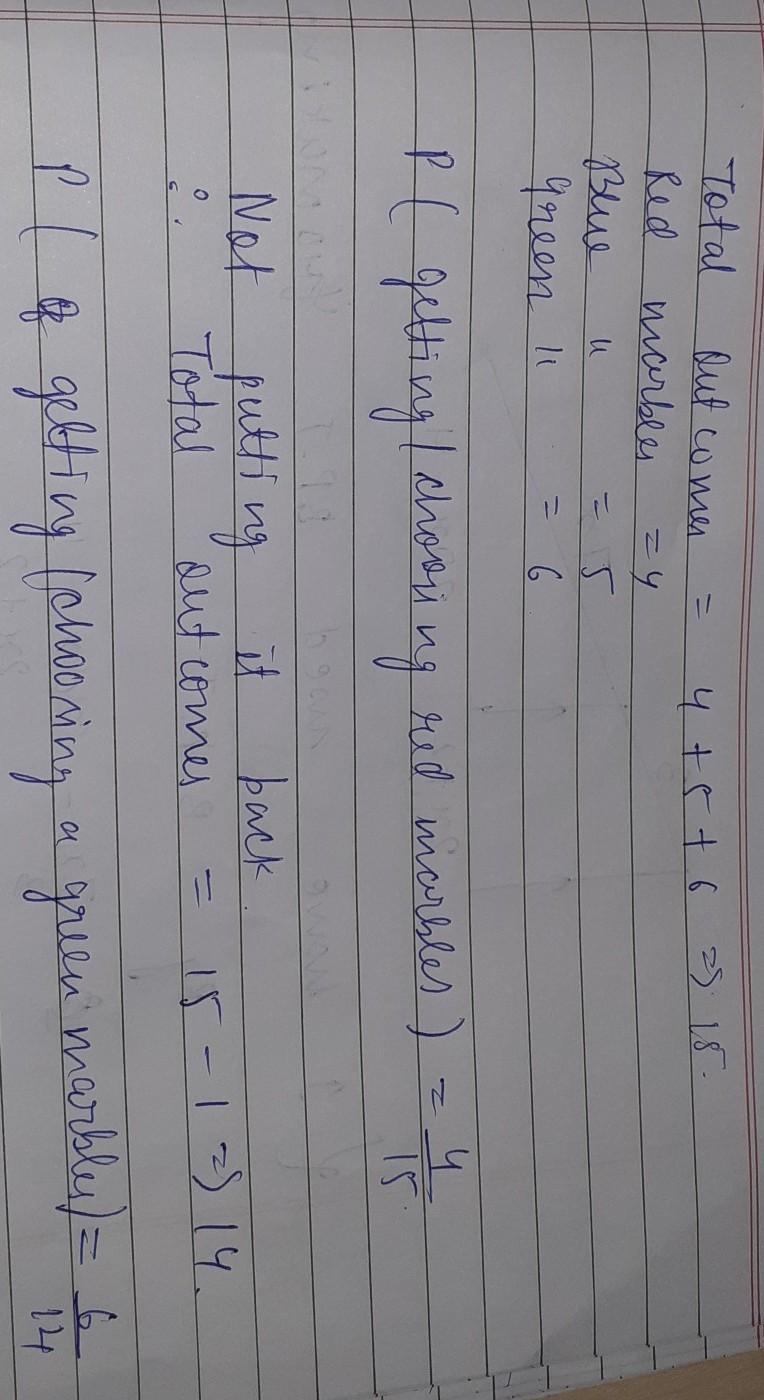 Total outcomes = 4 + 5 + 6 => 15.
Red marbles = 4
Blue " = 5
green " = 6
P( getting/choosing red marbles) = 4/15.
Not putting it back.
∴ Total outcomes = 15 - 1 => 14.
P( getting/choosing a green marbles) = 6/14